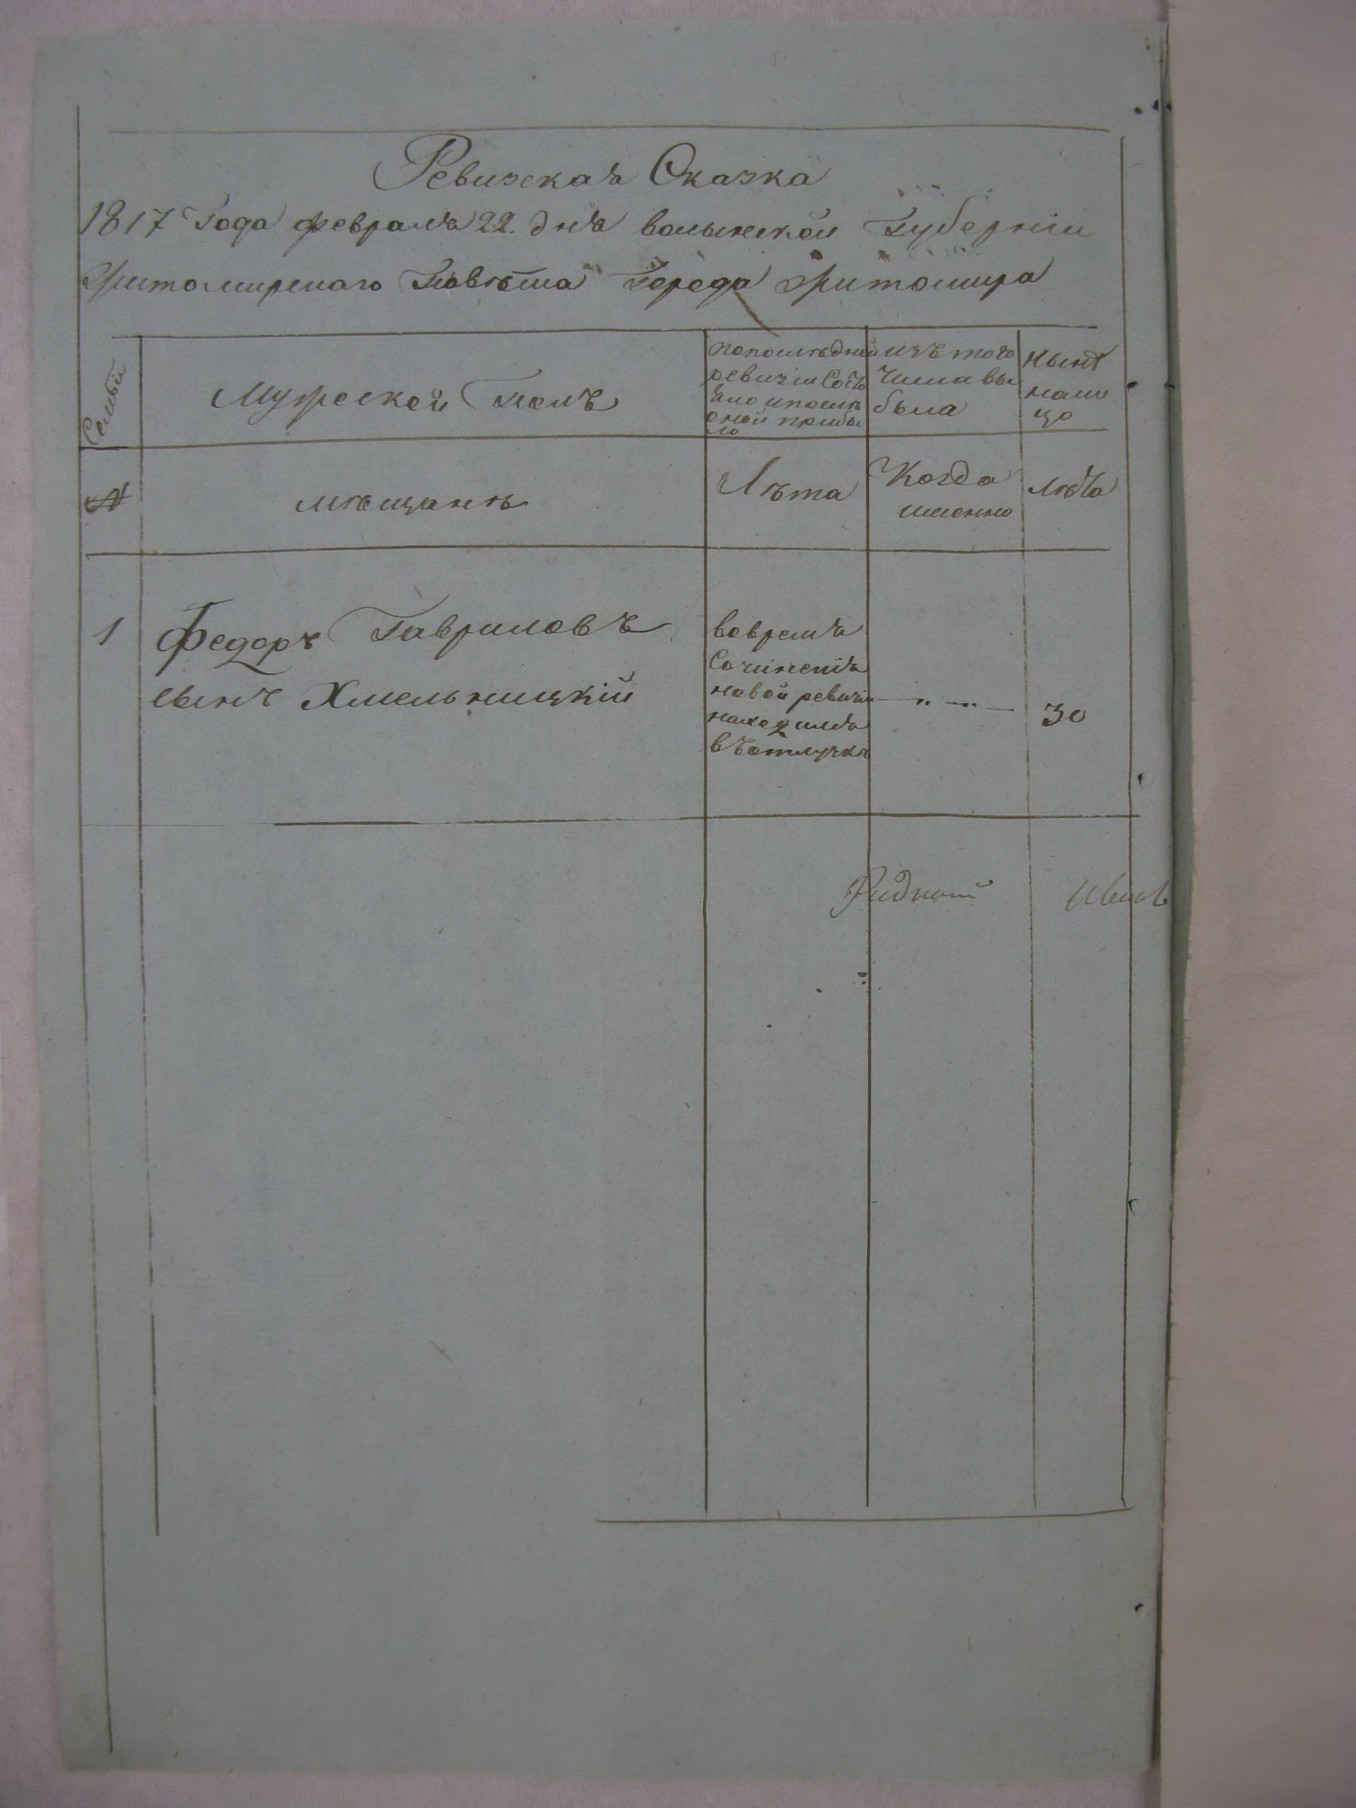 Ревизская Сказка
1817 Года февраля 22. дня волынской Губернiи
Житомирскаго Повѣта Города Житомира
Семьи
Мужеской Полъ
Попослѣдней
ревизiи Состо
яло ипослѣ
оной прибы
ло
изъ того
Числа вы
была
Нынѣ
нали
цо
№
мѣщанѣ
Лѣта
Когда
именно
Лѣта
1
Федоръ Гавриловъ
сынъ Хмельницкiй
вовремя
Сочиненiя
новой ревизiи
находился
въ отлучкѣ
— „ — „ —
30
Ридный